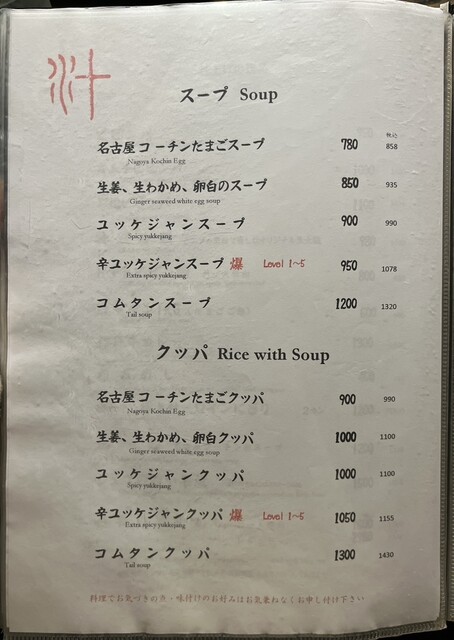 汁
スープ Soup
税込
名古屋コーチンたまごスープ 780 858
Nagoya Kochin Egg
生姜、生わかめ、卵白のスープ 850 935
Ginger seaweed white egg soup
ユッケジャンスープ 900 990
Spicy yukkejang
辛ユッケジャンスープ 爆 Level 1~5 950 1078
Extra spicy yukkejang
コムタンスープ 1200 1320
Tail soup
クッパ Rice with Soup
名古屋コーチンたまごクッパ 900 990
Nagoya Kochin Egg
生姜、生わかめ、卵白クッパ 1000 1100
Ginger seaweed white egg soup
ユッケジャンクッパ 1000 1100
Spicy yukkejang
辛ユッケジャンクッパ 爆 Level 1~5 1050 1155
Extra spicy yukkejang
コムタンクッパ 1300 1430
Tail soup
料理でお気づきの点・味付けのお好みはお気兼ねなくお申し付け下さい